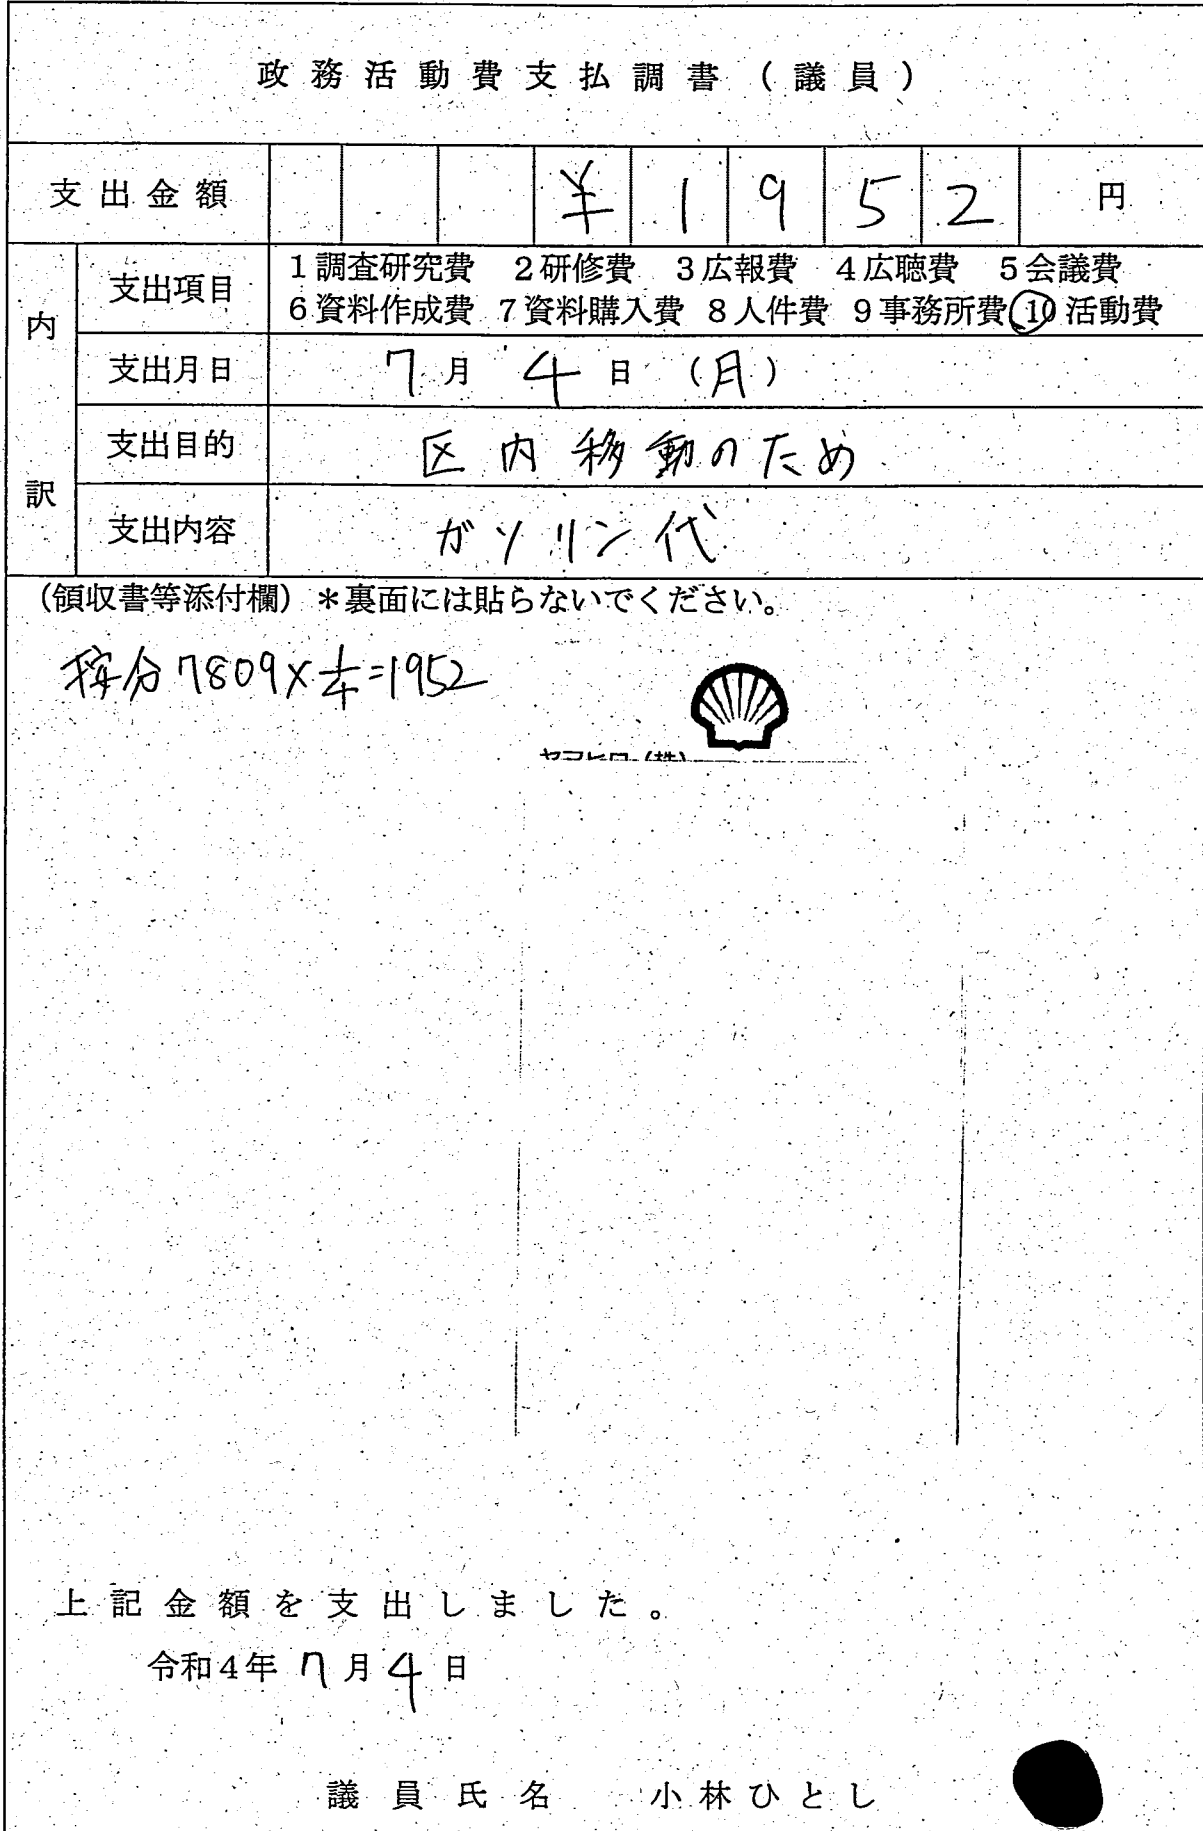 政務活動費支払調書（議員）
支出金額 ￥1952 円
内訳
支出項目 1調査研究費 2研修費 3広報費 4広聴費 5会議費
6資料作成費 7資料購入費 8人件費 9事務所費 10活動費
支出月日 7月4日（月）
支出目的 区内移動のため
支出内容 ガソリン代
（領収書等添付欄）＊裏面には貼らないでください。
按分7809×1/4=1952
ヤマヒロ（株）
上記金額を支出しました。
令和4年7月4日
議員氏名 小林ひとし